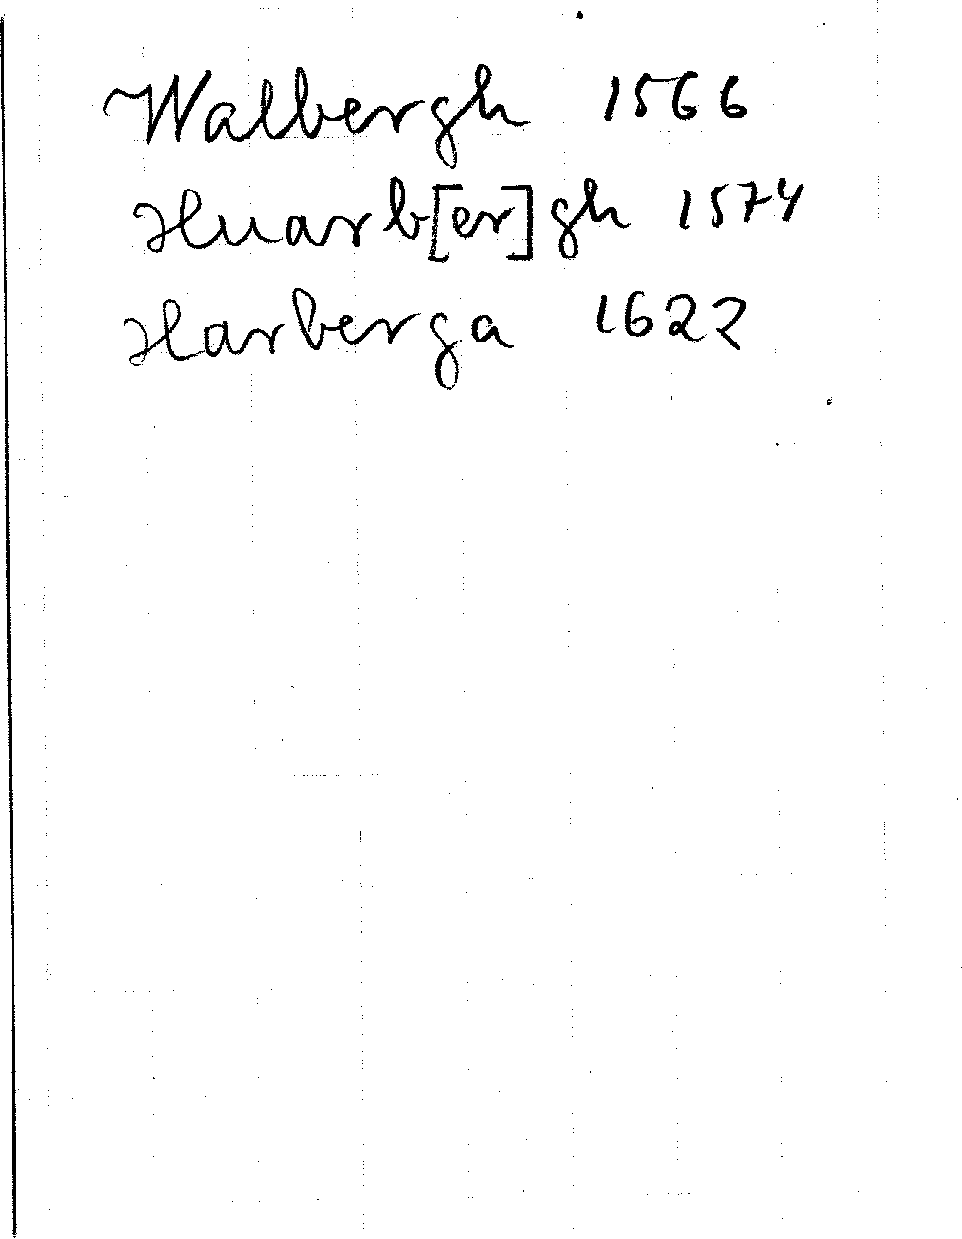 Walbergh 1566
Huarb[er]gh 1574
Harberga 1622